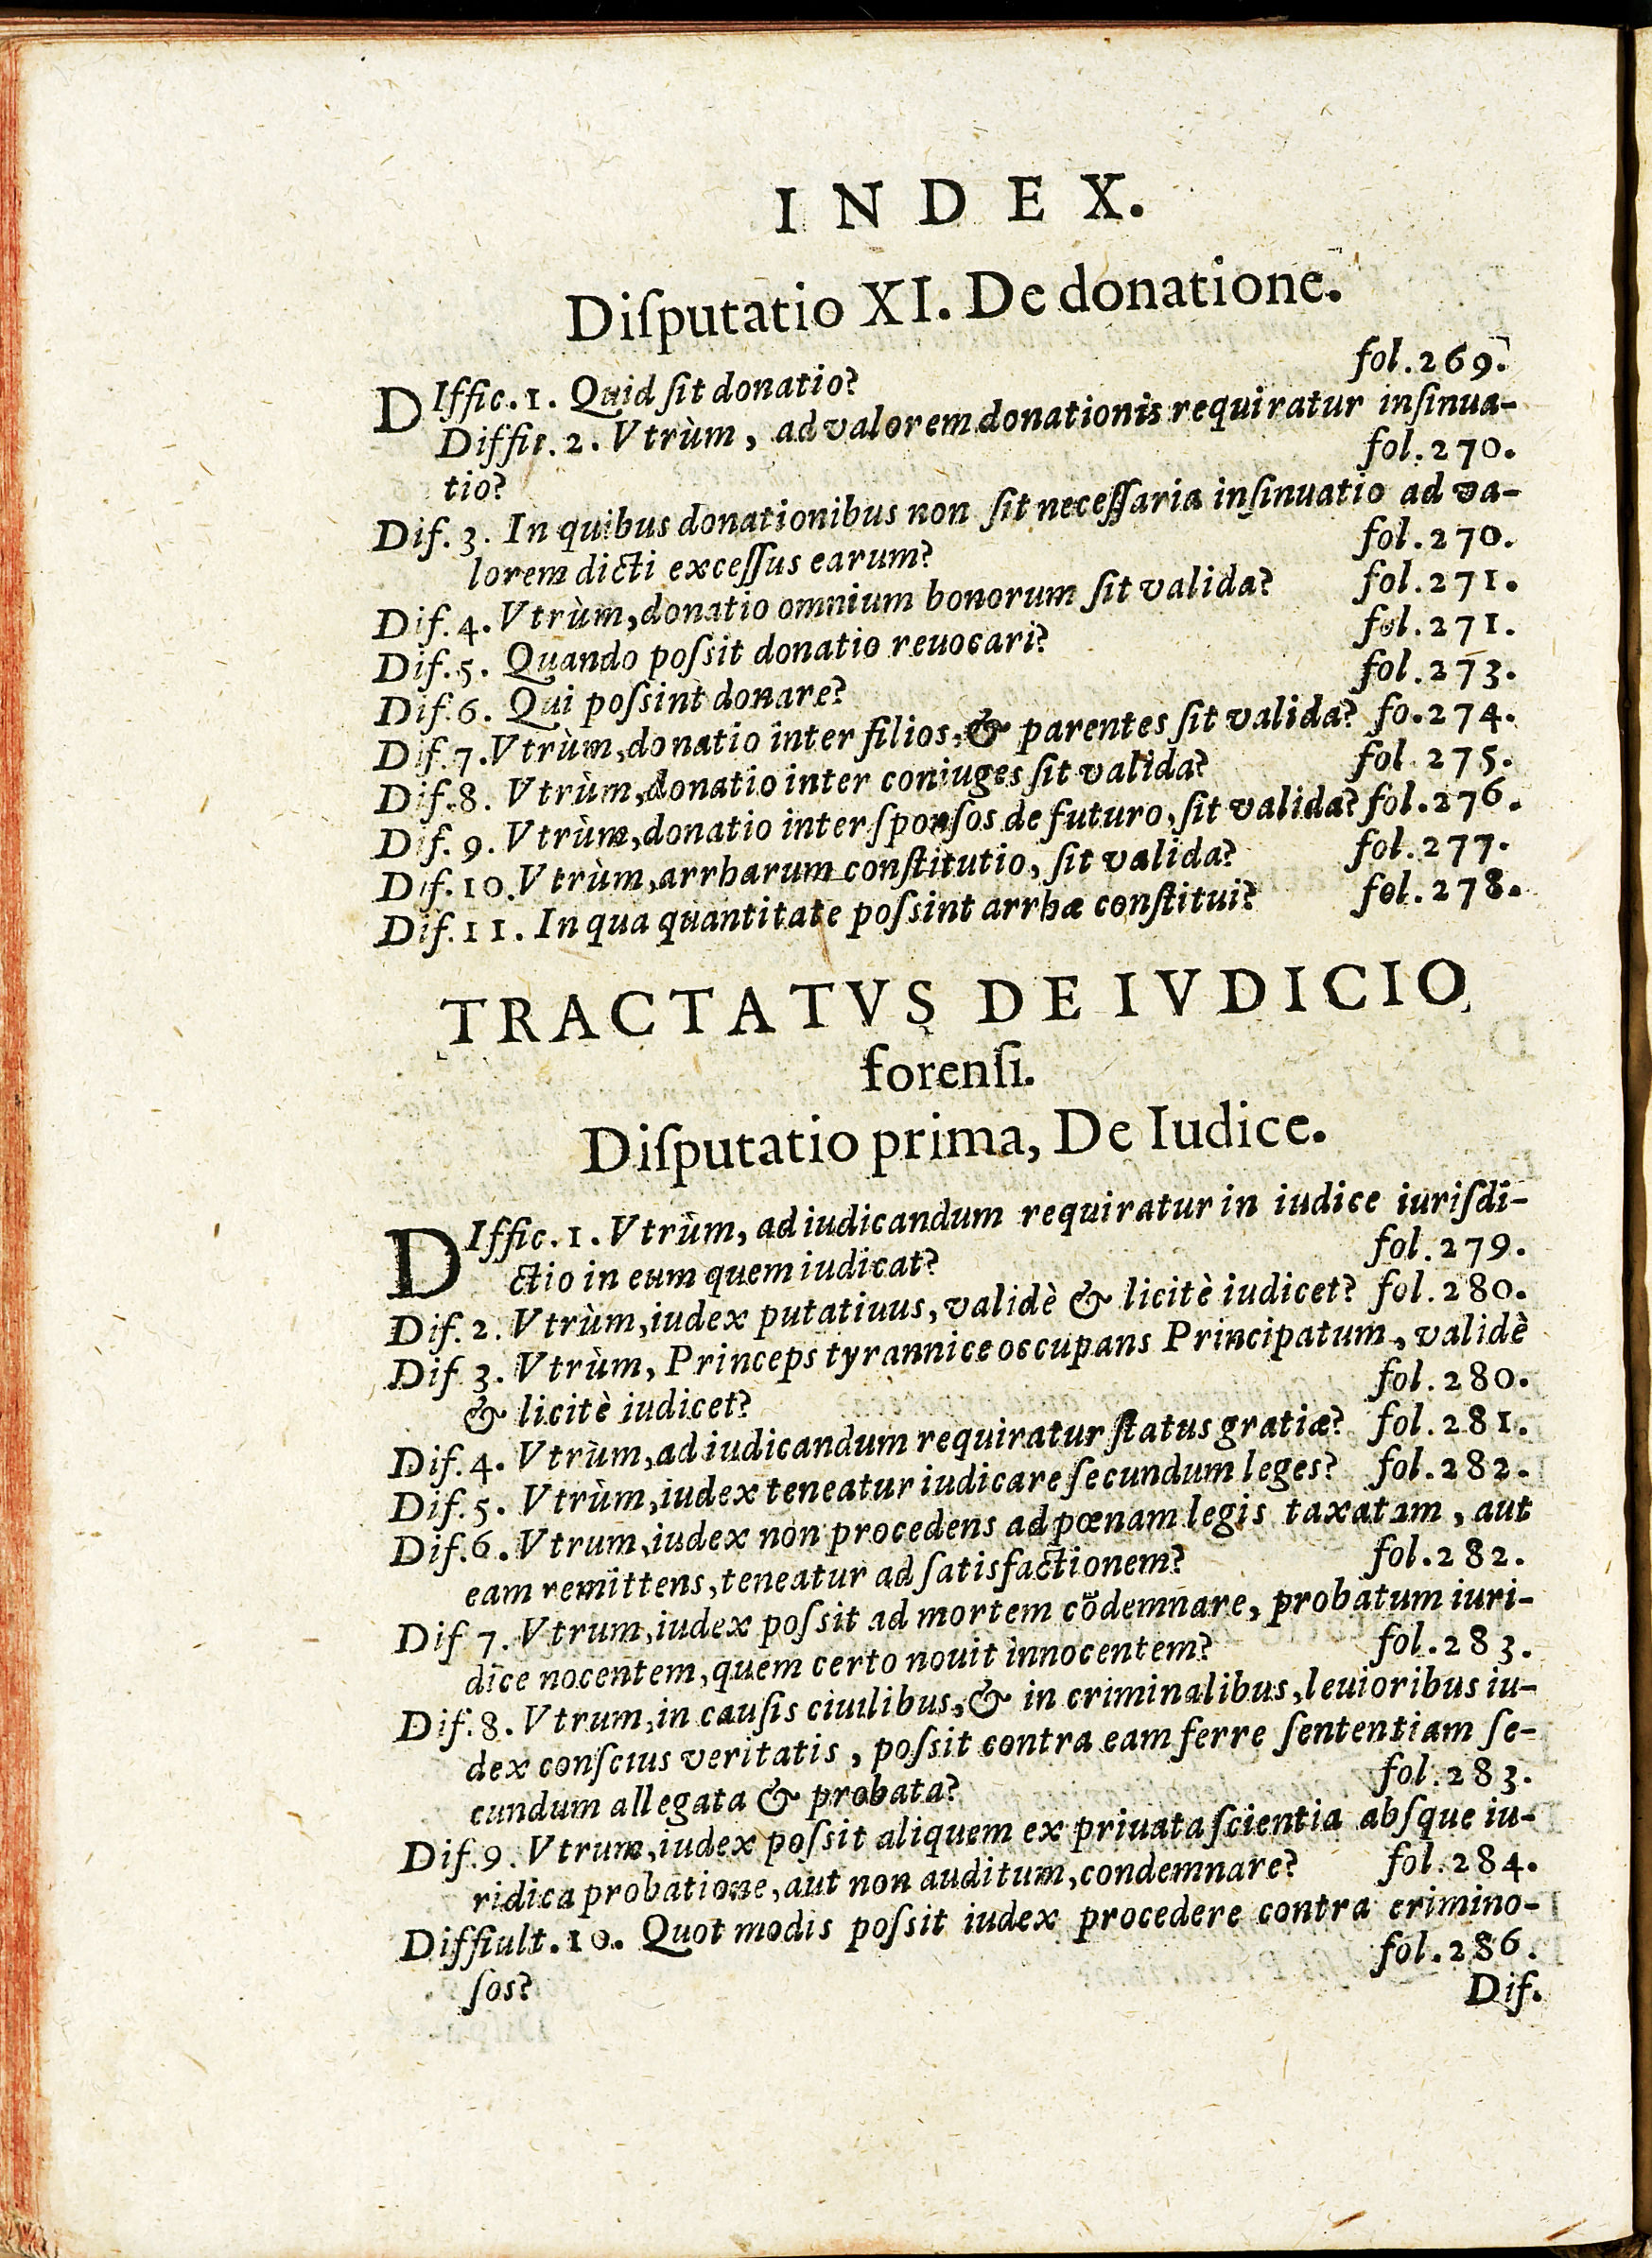 INDEX.
Diſputatio XI. De donatione.
DIffic. 1. Quid ſit donatio? fol. 269.
Diffic. 2. Vtrùm, ad valorem donationis requiratur inſinua-
tio? fol. 270.
Dif. 3. In quibus donationibus non ſit neceſſaria inſinuatio ad va-
lorem dicti exceſſus earum? fol. 270.
Dif. 4. Vtrùm, donatio omnium bonorum ſit valida? fol. 271.
Dif. 5. Quando poſsit donatio reuocari? fol. 271.
Dif. 6. Qui poſsint donare? fol. 273.
Dif. 7. Vtrùm, donatio inter filios, & parentes ſit valida? fo. 274.
Dif. 8. Vtrùm, donatio inter coniuges ſit valida? fol. 275.
Dif. 9. Vtrùm, donatio inter ſponſos de futuro, ſit valida? fol. 276.
Dif. 10. Vtrùm, arrharum conſtitutio, ſit valida? fol. 277.
Dif. 11. In qua quantitate poſsint arrhæ conſtitui? fol. 278.
TRACTATVS DE IVDICIO
forenſi.
Diſputatio prima, De Iudice.
DIffic. 1. Vtrùm, ad iudicandum requiratur in iudice iuriſdi-
ctio in eum quem iudicat? fol. 279.
Dif. 2. Vtrùm, iudex putatiuus, validè & licitè iudicet? fol. 280.
Dif 3. Vtrùm, Princeps tyrannice occupans Principatum, validè
& licitè iudicet? fol. 280.
Dif. 4. Vtrùm, ad iudicandum requiratur ſtatus gratiæ? fol. 281.
Dif. 5. Vtrùm, iudex teneatur iudicare ſecundum leges? fol. 282.
Dif. 6. Vtrum, iudex non procedens ad pœnam legis taxatam, aut
eam remittens, teneatur ad ſatisfactionem? fol. 282.
Dif 7. Vtrum, iudex poſsit ad mortem cõdemnare, probatum iuri-
dice nocentem, quem certo nouit innocentem? fol. 283.
Dif. 8. Vtrum, in cauſis ciuilibus, & in criminalibus, leuioribus iu-
dex conſcius veritatis, poſsit contra eam ferre ſententiam ſe-
cundum allegata & probata? fol. 283.
Dif. 9. Vtrum, iudex poſsit aliquem ex priuata ſcientia abſque iu-
ridica probatione, aut non auditum, condemnare? fol. 284.
Diffiult. 10. Quot modis poſsit iudex procedere contra crimino-
ſos? fol. 286.
Dif.